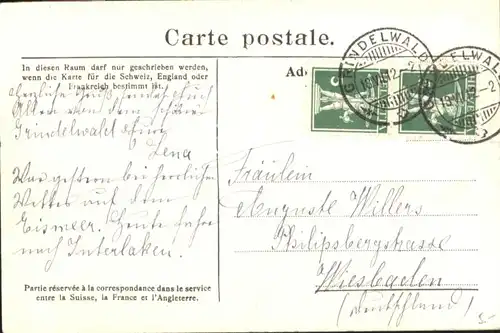 Carte postale.
In diesen Raum darf nur geschrieben werden,
wenn die Karte für die Schweiz, England oder
Frankreich bestimmt ist.
Ad
GRINDELWALD
Herzliche Grüße sendet Euch
Allen von dem schönen
Grindelwald Eure
Lena
War gestern bei herrlichem
Wetter auf dem
Eismeer. Heute fahre
nach Interlaken.
Fräulein
Auguste Willers
Philippsbergstrasse
Wiesbaden
(Deutschland)
Partie réservée à la correspondance dans le service
entre la Suisse, la France et l'Angleterre.